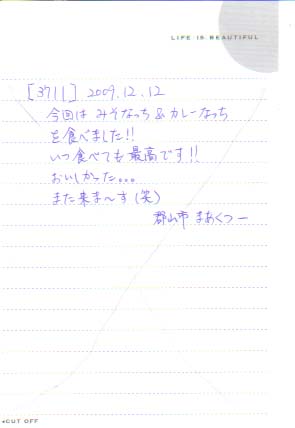 LIFE IS BEAUTIFUL
[3711] 2009.12.12
今回は みそなっち & カレーなっち
を食べました!!
いつ食べても最高です!!
おいしかった。。。
また来ま〜す(笑)
郡山市 まあくつー
CUT OFF